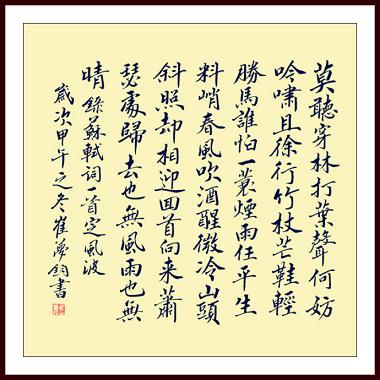 莫聽穿林打葉聲何妨
吟嘯且徐行竹杖芒鞋輕
勝馬誰怕一蓑煙雨任平生
料峭春風吹酒醒微冷山頭
斜照却相迎回首向来蕭
瑟處歸去也無風雨也無
晴 錄蘇軾詞一首定風波
歲次甲午之冬崔書